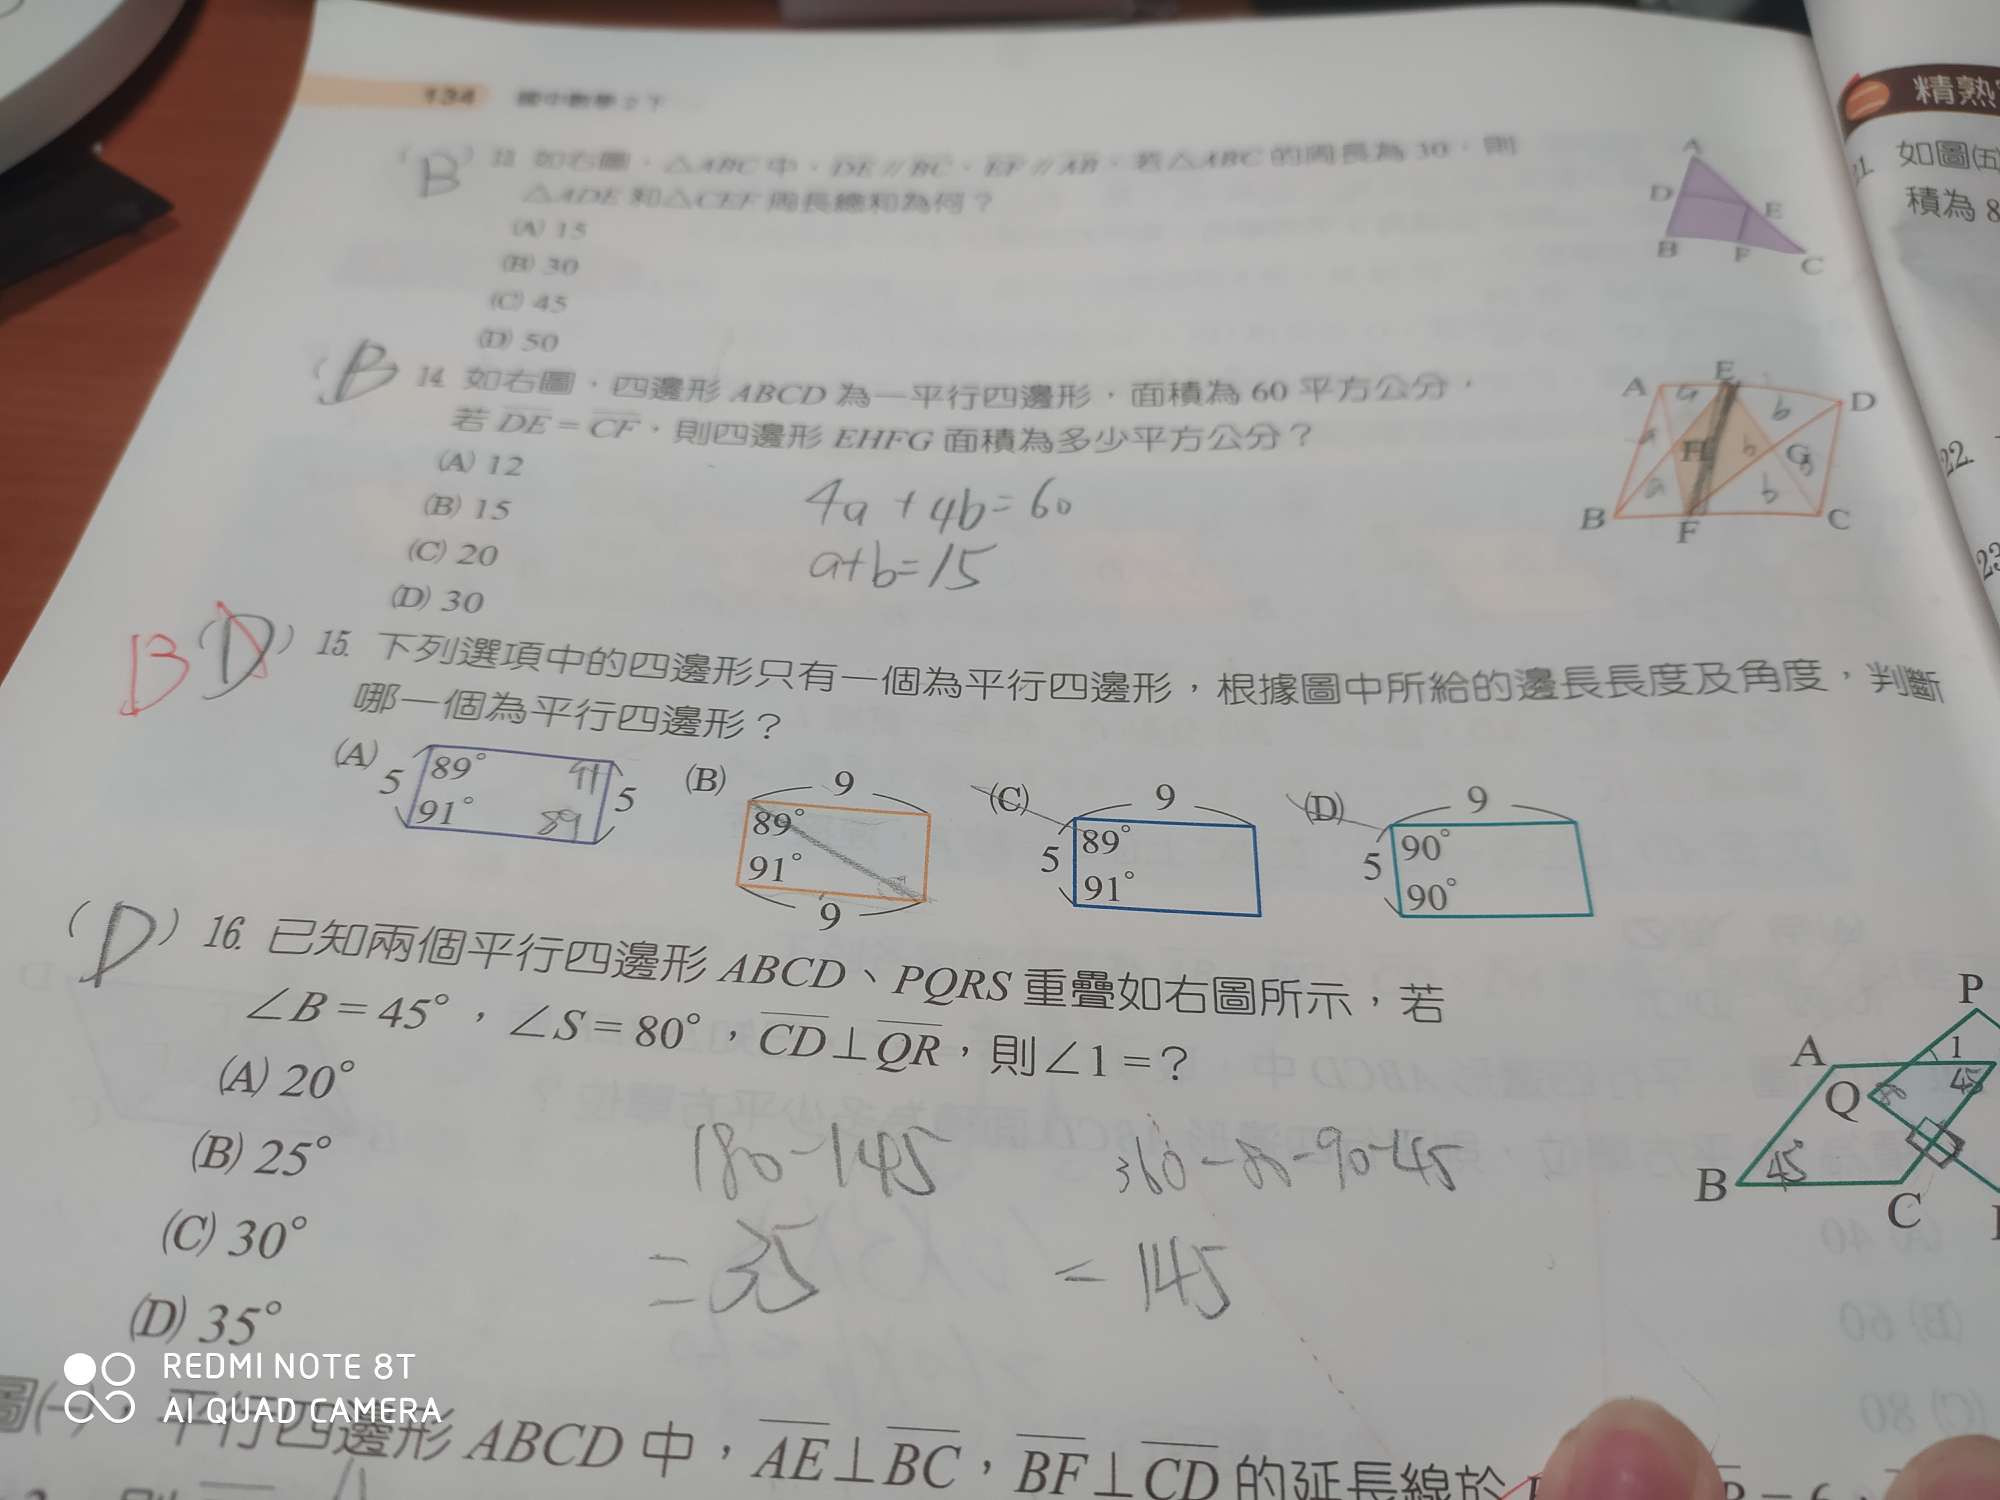 134 國中數學2下
精熟
(B) 13. 如右圖,△ABC 中,DE // BC、EF // AB,若△ABC 的周長為 30,則
△ADE 和△CEF 周長總和為何?
(A) 15
(B) 30
(C) 45
(D) 50
A
D
E
B
F
C
21. 如圖(五)
積為 8
(B) 14. 如右圖,四邊形 ABCD 為一平行四邊形,面積為 60 平方公分,
若 DE = CF,則四邊形 EHFG 面積為多少平方公分?
(A) 12
(B) 15
(C) 20
(D) 30
4a + 4b = 60
a+b=15
A E D
a b
a H b G b
a b
B F C
22.
23
B (D) 15. 下列選項中的四邊形只有一個為平行四邊形,根據圖中所給的邊長長度及角度,判斷
哪一個為平行四邊形?
(A) 5 89° 91 91° 89 5
(B) 9 89° 91° 9
(C) 9 5 89° 91°
(D) 9 5 90° 90°
(D) 16. 已知兩個平行四邊形 ABCD、PQRS 重疊如右圖所示,若
∠B = 45°,∠S = 80°,CD⊥QR,則∠1 = ?
(A) 20°
(B) 25°
(C) 30°
(D) 35°
180-145
= 35
360-80-90-45
= 145
P
A 1
Q 80 45
B 45 C
圖(一),平行四邊形 ABCD 中,AE⊥BC,BF⊥CD 的延長線於
REDMI NOTE 8T
AI QUAD CAMERA